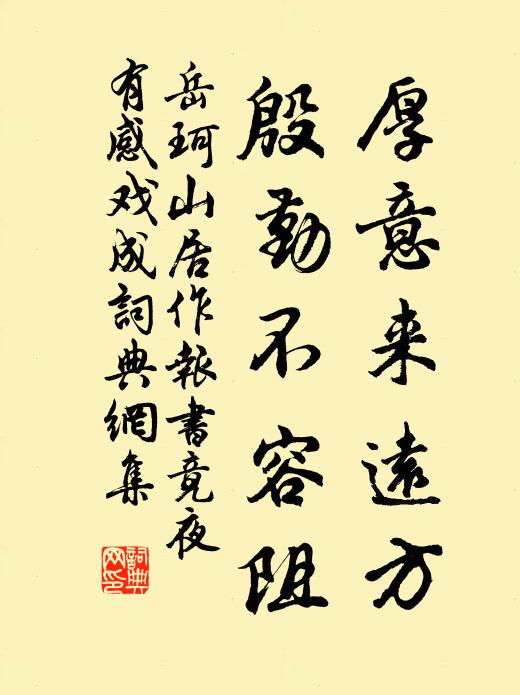 厚意来遠方
殷勤不容阻
岳珂山居作報書竟夜
有感戏成詞典網集
詞典
网印